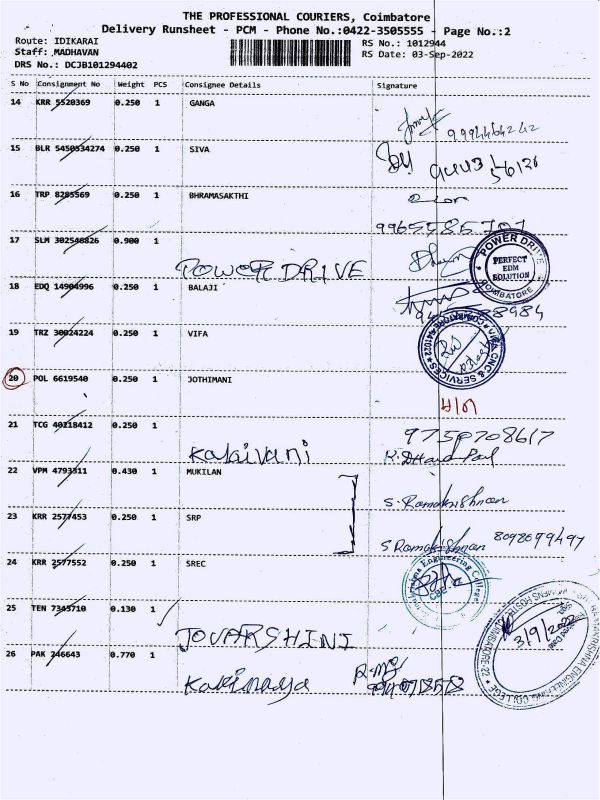 THE PROFESSIONAL COURIERS, Coimbatore
Delivery Runsheet - PCM - Phone No.:0422-3505555 - Page No.:2
Route: IDIKARAI
Staff: MADHAVAN
DRS No.: DCJB101294402
RS No.: 1012944
RS Date: 03-Sep-2022
S No Consignment No Weight PCS Consignee Details Signature
14 KRR 5520369 0.250 1 GANGA
9994464242
15 BLR 5450534274 0.250 1 SIVA
16 TRP 8285569 0.250 1 BHRAMASAKTHI
9965585707
17 SLM 302540826 0.900 1
POWER DRIVE
POWER DRIVE
PERFECT
EDM
SOLUTION
COIMBATORE
18 EDQ 14904996 0.250 1 BALAJI
19 TRZ 30024224 0.250 1 VIFA
CNC & SERVICES
20 POL 6619540 0.250 1 JOTHIMANI
21 TCG 40218412 0.250 1
Kalaivani
9750708617
22 VPM 4793311 0.430 1 MUKILAN
S. Ramakrishnan
23 KRR 2577453 0.250 1 SRP
S Ramakrishnan 8098099497
24 KRR 2577552 0.250 1 SREC
Engineering College
25 TEN 7343710 0.130 1
JOVARSHINI
3/9/2022
26 PAK 246643 0.770 1